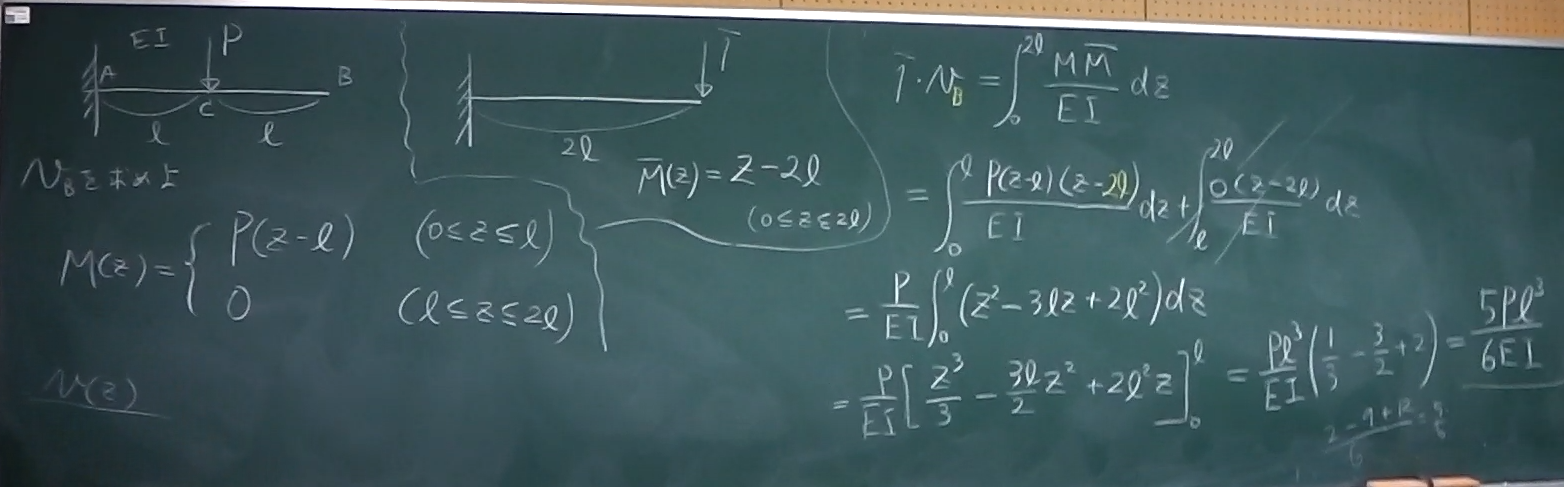 EI P
A B
C
l l
v_Bを求めよ
M(z) = { P(z-l) (0≤z≤l)
0 (l≤z≤2l)
v(z)
1̄
2l
M̄(z) = z-2l
(0≤z≤2l)
1̄·v_B = ∫_0^{2l} MM̄/EI dz
= ∫_0^l P(z-l)(z-2l)/EI dz + ∫_l^{2l} 0(z-2l)/EI dz
= P/EI ∫_0^l (z²-3lz+2l²)dz
= P/EI [z³/3 - 3l/2 z² + 2l²z]_0^l = Pl³/EI (1/3 - 3/2 + 2) = 5Pl³/6EI
(2-9+12)/6 = 5/6